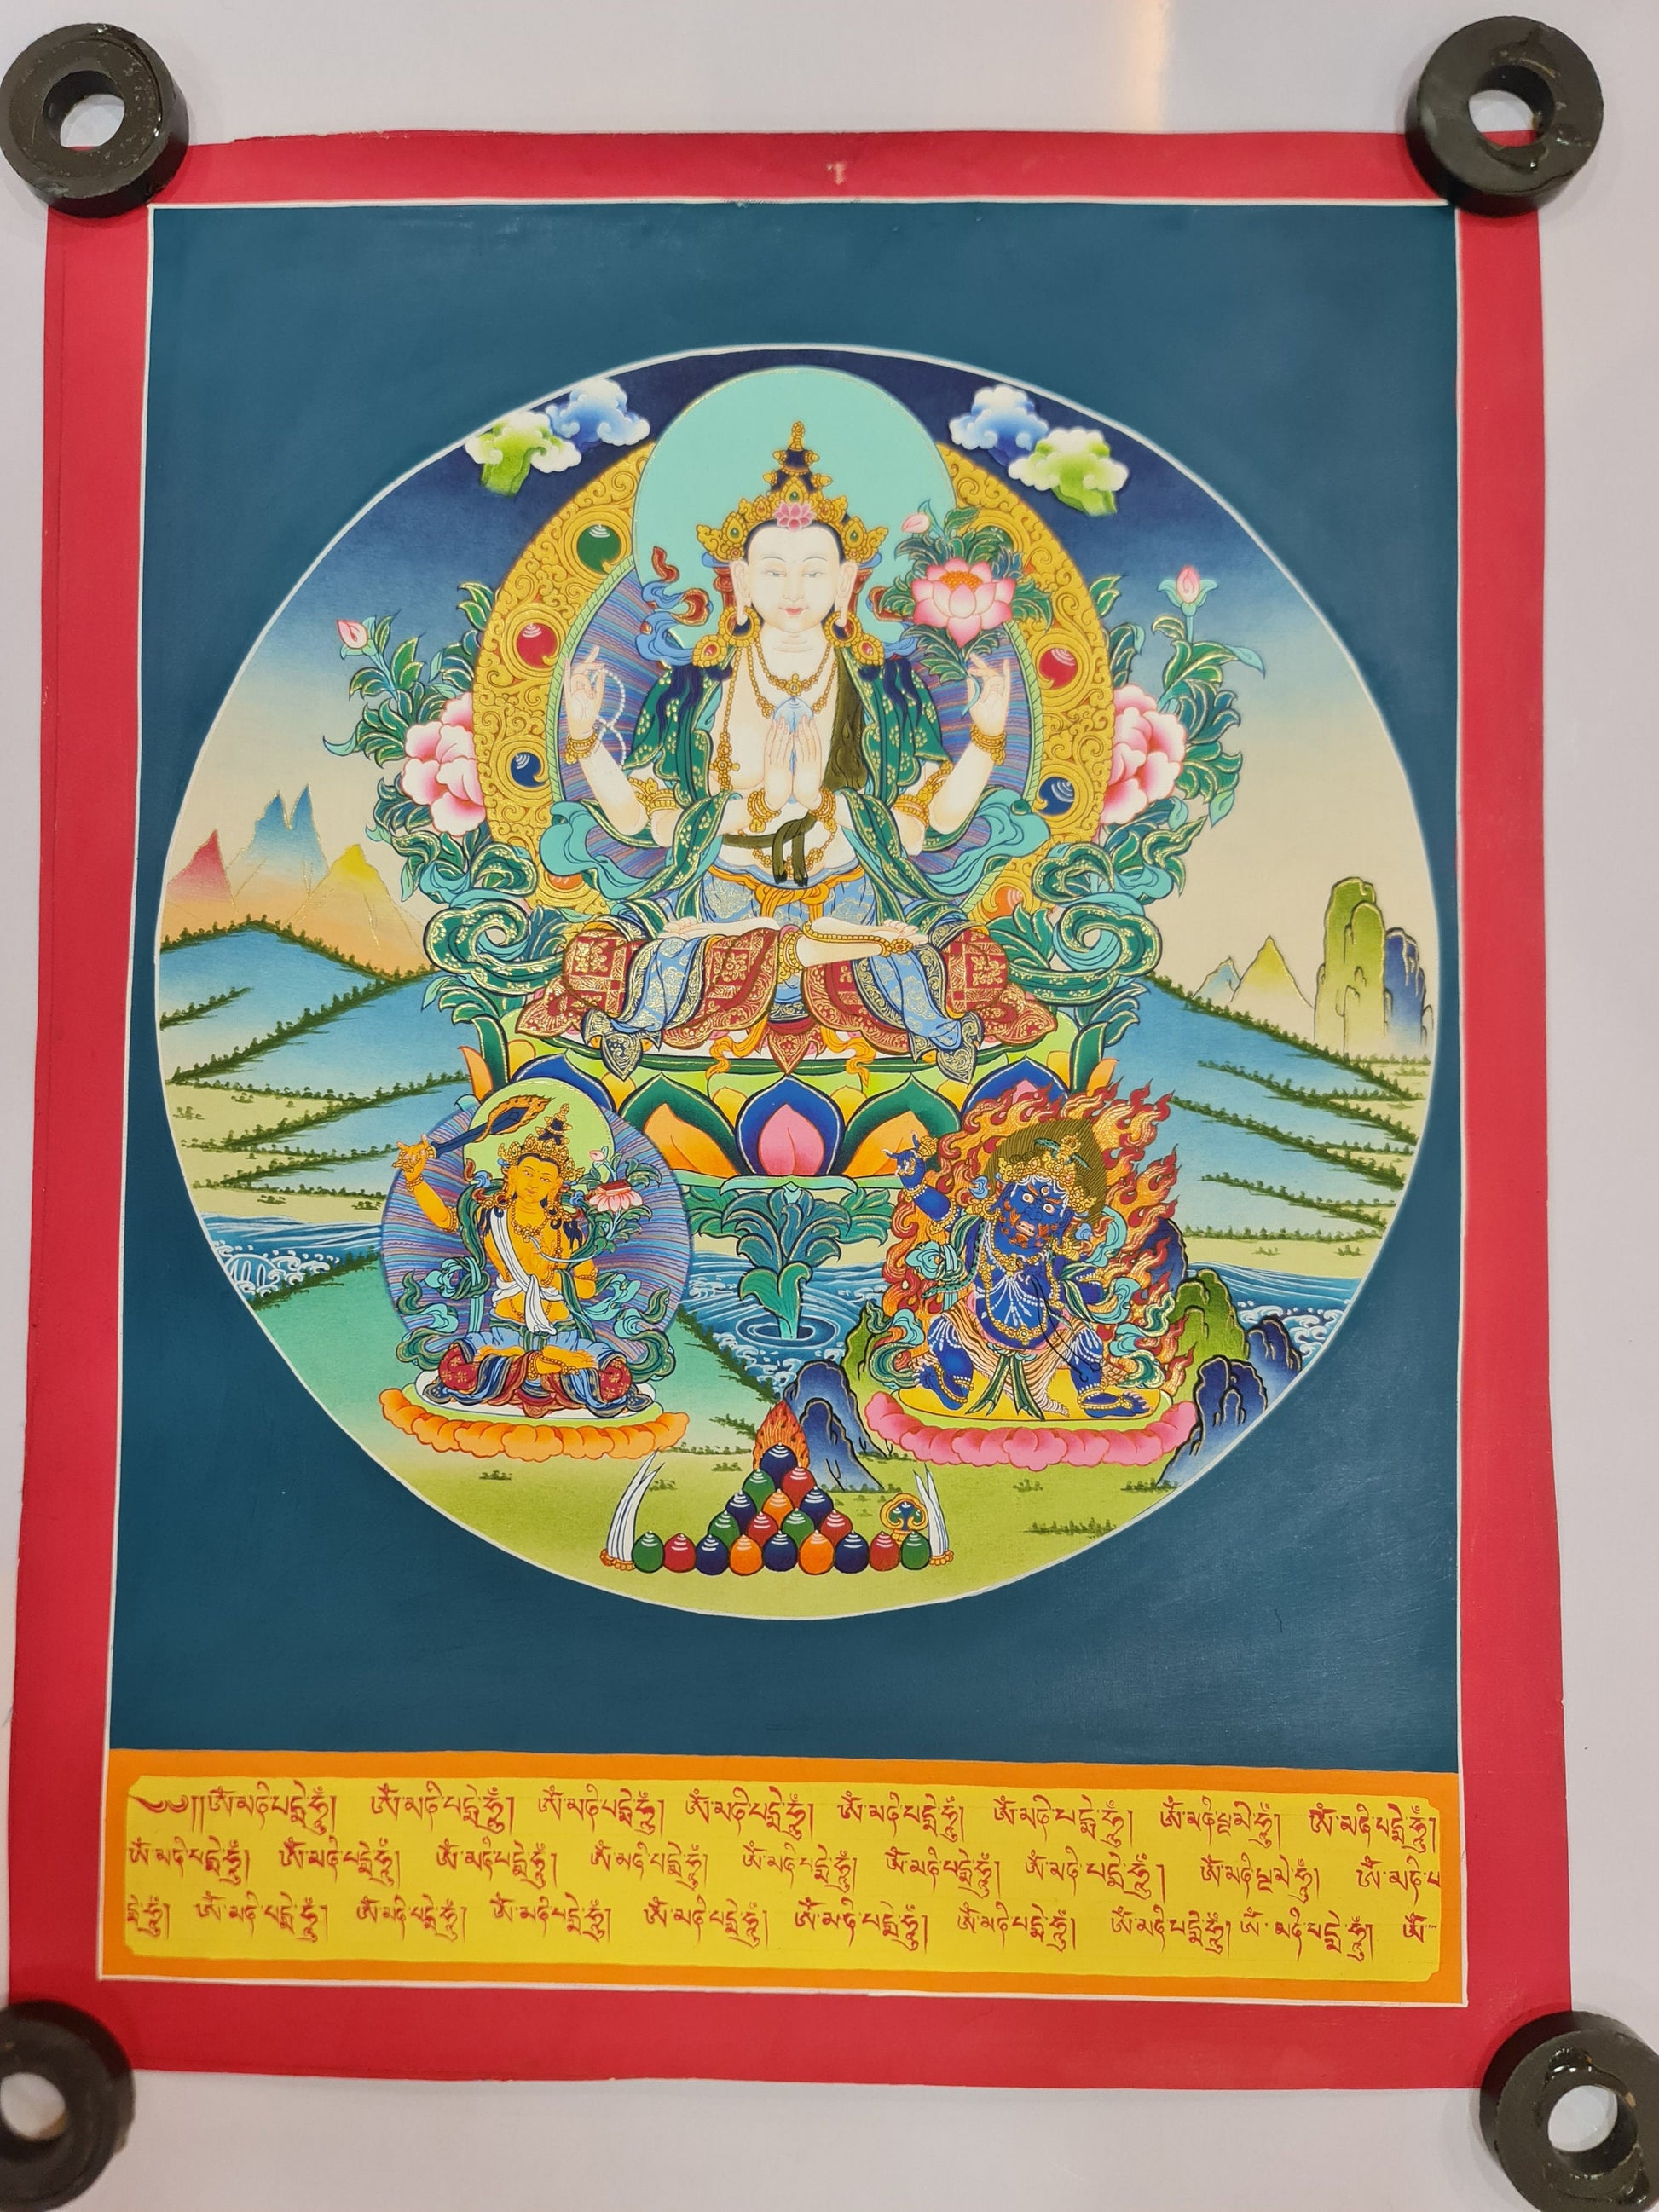 ༄༅།།ཨོཾ་མཎི་པདྨེ་ཧཱུྃ། ཨོཾ་མཎི་པདྨེ་ཧཱུྃ། ཨོཾ་མཎི་པདྨེ་ཧཱུྃ། ཨོཾ་མཎི་པདྨེ་ཧཱུྃ། ཨོཾ་མཎི་པདྨེ་ཧཱུྃ། ཨོཾ་མཎི་པདྨེ་ཧཱུྃ། ཨོཾ་མཎི་པདྨེ་ཧཱུྃ། ཨོཾ་མཎི་པདྨེ་ཧཱུྃ།
ཨོཾ་མཎི་པདྨེ་ཧཱུྃ། ཨོཾ་མཎི་པདྨེ་ཧཱུྃ། ཨོཾ་མཎི་པདྨེ་ཧཱུྃ། ཨོཾ་མཎི་པདྨེ་ཧཱུྃ། ཨོཾ་མཎི་པདྨེ་ཧཱུྃ། ཨོཾ་མཎི་པདྨེ་ཧཱུྃ། ཨོཾ་མཎི་པདྨེ་ཧཱུྃ། ཨོཾ་མཎི་པདྨེ་ཧཱུྃ། ཨོཾ་མཎི་པ
དྨེ་ཧཱུྃ། ཨོཾ་མཎི་པདྨེ་ཧཱུྃ། ཨོཾ་མཎི་པདྨེ་ཧཱུྃ། ཨོཾ་མཎི་པདྨེ་ཧཱུྃ། ཨོཾ་མཎི་པདྨེ་ཧཱུྃ། ཨོཾ་མཎི་པདྨེ་ཧཱུྃ། ཨོཾ་མཎི་པདྨེ་ཧཱུྃ། ཨོཾ་མཎི་པདྨེ་ཧཱུྃ། ཨོཾ་མཎི་པདྨེ་ཧཱུྃ། ཨོཾ་